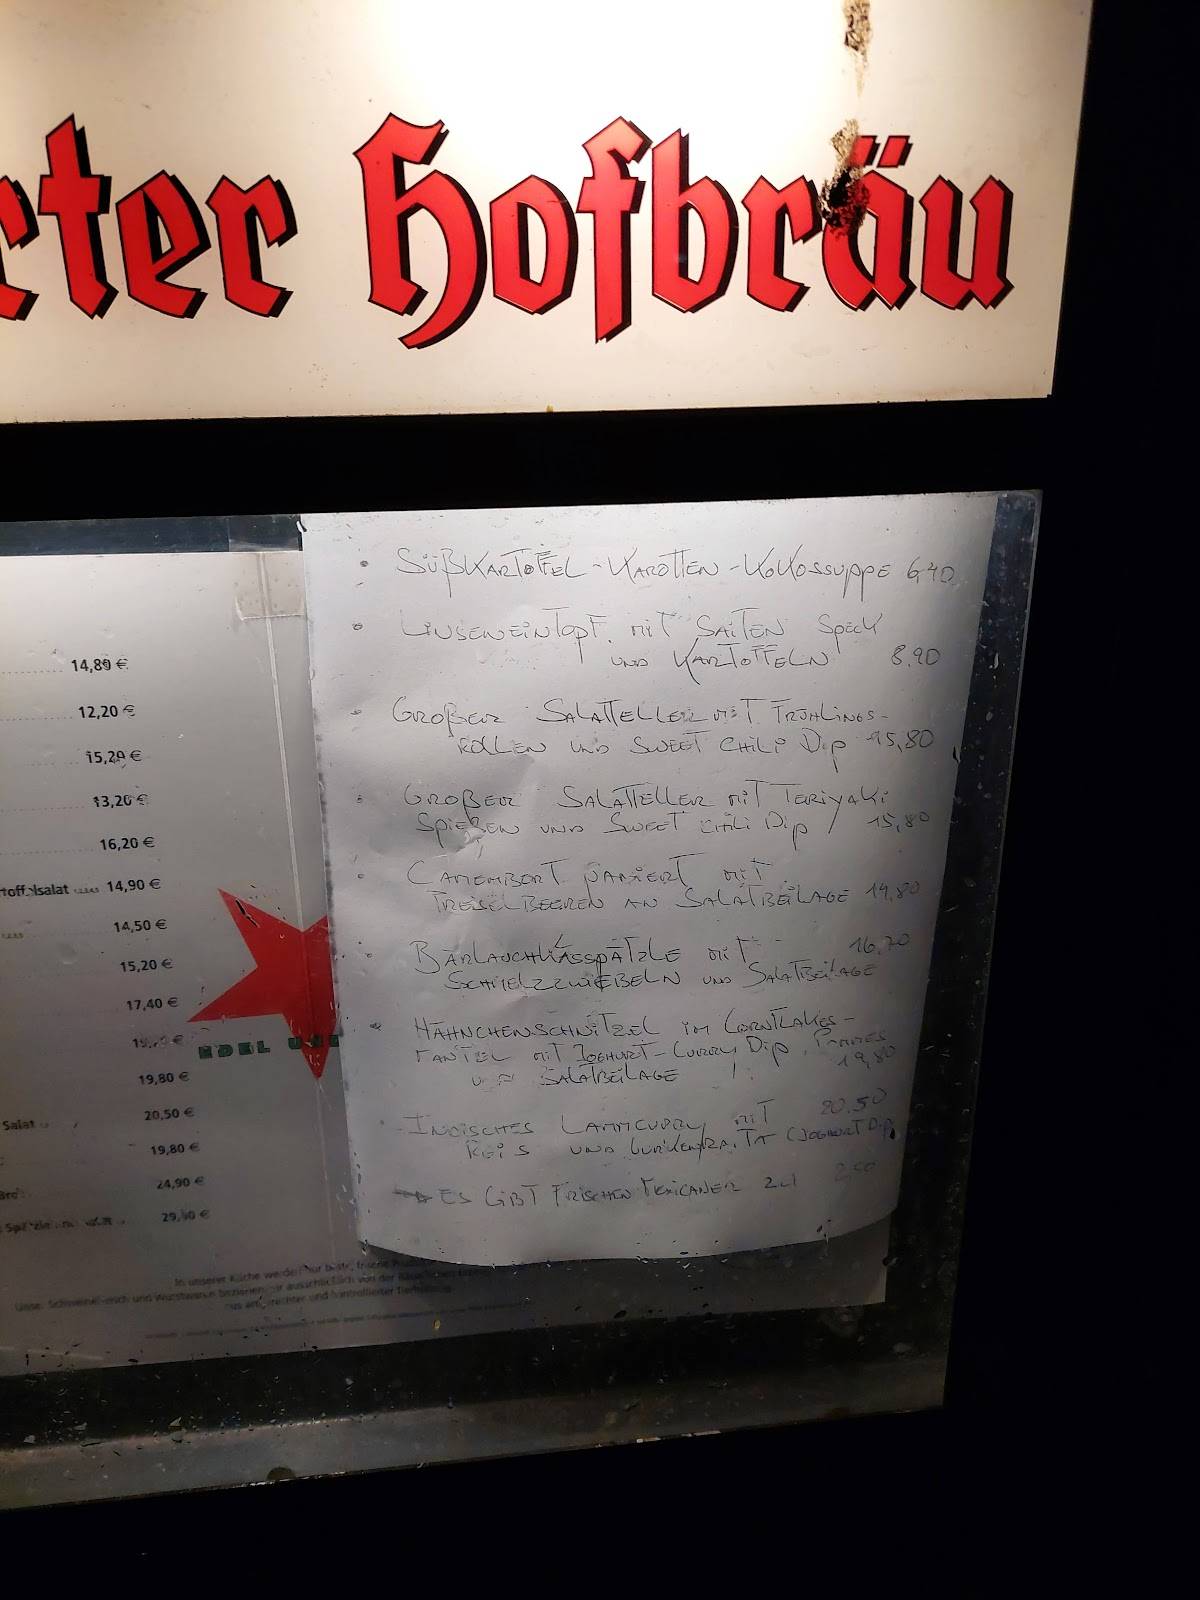 rter Hofbräu
14,80 €
12,20 €
15,20 €
13,20 €
16,20 €
toffelsalat 14,90 €
14,50 €
15,20 €
17,40 €
19,80 €
Salat 20,50 €
19,80 €
24,90 €
EDEL
In unserer Küche
• SÜßKARTOFFEL-KAROTTEN-KOKOSSUPPE 6,40
• LINSENEINTOPF MIT SAITEN SPECK
UND KARTOFFELN 8.90
• GROßER SALATTELLER MIT FRÜHLINGS-
ROLLEN UND SWEET CHILI DIP 15,80
• GROßER SALATTELLER MIT TERIYAKI
SPIEßEN UND SWEET CHILI DIP 15,80
• CAMEMBERT PANIERT MIT
PREISELBEEREN AN SALATBEILAGE 14,80
• BÄRLAUCHKÄSSPÄTZLE MIT 16,70
SCHMELZZWIEBELN UND SALATBEILAGE
• HÄHNCHENSCHNITZEL IM CORNFLAKES-
MANTEL MIT JOGHURT-CURRY DIP, POMMES
UND SALATBEILAGE 19,80
• INDISCHES LAMMCURRY MIT 20.50
REIS UND GURKENRAITA (JOGHURT DIP)
ES GIBT FRISCHEN MEXICANER 2cl 2,50